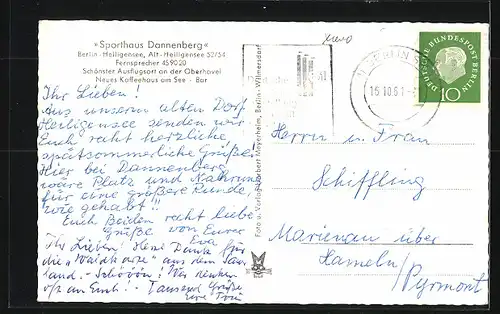 »Sporthaus Dannenberg«
Berlin-Heiligensee, Alt-Heiligensee 52/54
Fernsprecher 459020
Schönster Ausflugsort an der Oberhavel
Neues Kaffeehaus am See - Bar
Ihr Lieben!
Aus unserm alten Dorf
Heiligensee senden wir
Euch recht herzliche
spätsommerliche Grüße.
Hier bei Dannenberg
wäre Platz und Nahrung
für eine größere Runde,
wie gehabt!!
Euch Beiden recht liebe
Grüße von Eurer
Eva
Ihr Lieben! Dank für
die aus dem
land. - Schööön! Wir denken
oft an Euch! - Tausend Grüße
Eure
Foto u. Verlag Robert Meyerheim, Berlin-Wilmersdorf
BERLIN
15.10.61
DEUTSCHE BUNDESPOST BERLIN
10
Herrn u. Frau
Schiffling
Marienau über
Hameln/
Pyrmont